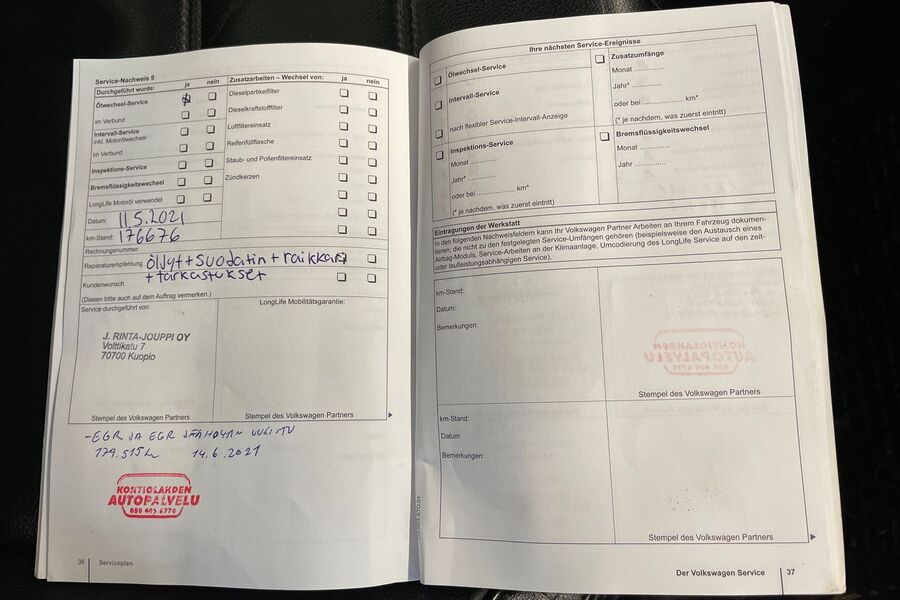 Service-Nachweis 9
ja
nein
Durchgeführt wurde:
Ölwechsel-Service
im Verbund
Intervall-Service
inkl. Motorölwechsel
im Verbund
Inspektions-Service
Bremsflüssigkeitswechsel
LongLife Motoröl verwendet
Datum: 11.5.2021
km-Stand: 176676
Rechnungsnummer:
Reparaturempfehlung öljyt + suodatin + raikkari
+ tarkastukset
Kundenwunsch
(Diesen bitte auch auf dem Auftrag vermerken.)
Zusatzarbeiten – Wechsel von:
ja
nein
Dieselpartikelfilter
Dieselkraftstofffilter
Luftfiltereinsatz
Reifenfüllflasche
Staub- und Pollenfiltereinsatz
Zündkerzen
Service durchgeführt von:
J. RINTA-JOUPPI OY
Volttikatu 7
70700 Kuopio
Stempel des Volkswagen Partners
LongLife Mobilitätsgarantie:
Stempel des Volkswagen Partners
- EGR JA EGR JÄÄHDYTIN UUSITTU
179.515 14.6.2021
KONTIOLAHDEN
AUTOPALVELU
36
Serviceplan
Ihre nächsten Service-Ereignisse
Ölwechsel-Service
Intervall-Service
nach flexibler Service-Intervall-Anzeige
Inspektions-Service
Monat ............
Jahr* ............
oder bei ............ km*
(* je nachdem, was zuerst eintritt)
Zusatzumfänge
Monat ............
Jahr* ............
oder bei ............ km*
(* je nachdem, was zuerst eintritt)
Bremsflüssigkeitswechsel
Monat ............
Jahr ............
Eintragungen der Werkstatt
In den folgenden Nachweisfeldern kann Ihr Volkswagen Partner Arbeiten an Ihrem Fahrzeug dokumen-
tieren, die nicht zu den festgelegten Service-Umfängen gehören (beispielsweise den Austausch eines
Airbag-Moduls, Service-Arbeiten an der Klimaanlage, Umcodierung des LongLife Service auf den zeit-
oder laufleistungsabhängigen Service).
km-Stand:
Datum:
Bemerkungen:
Stempel des Volkswagen Partners
km-Stand:
Datum:
Bemerkungen:
Stempel des Volkswagen Partners
Der Volkswagen Service
37